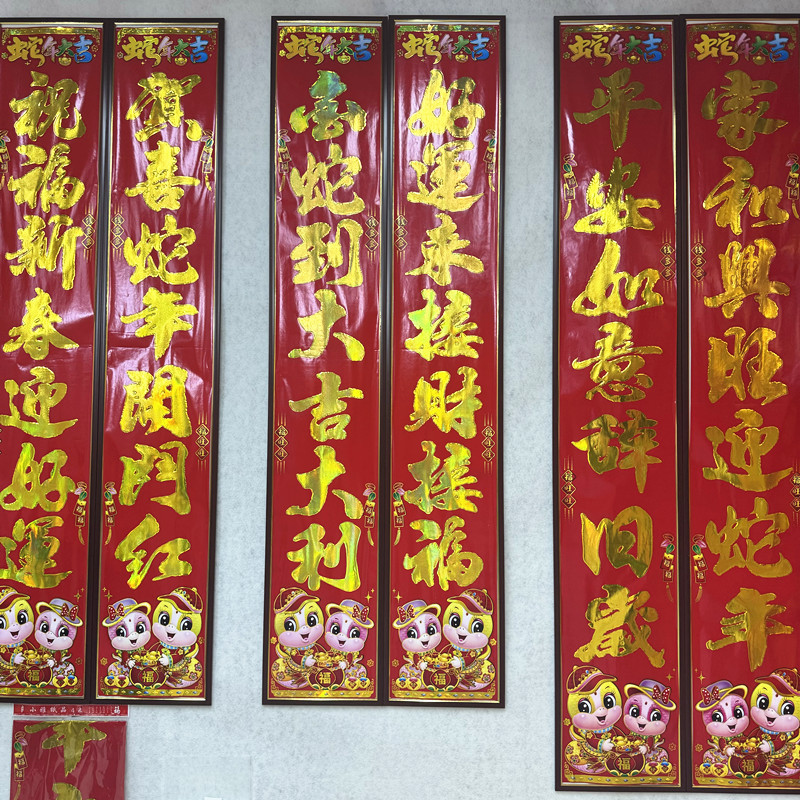 蛇年大吉
祝福新春迎好運
蛇年大吉
賀喜蛇年開門红
蛇年大吉
金蛇到大吉大利
蛇年大吉
好運来接財接福
蛇年大吉
平安如意辞旧歲
蛇年大吉
家和興旺迎蛇年
福
福
福
福
福
平